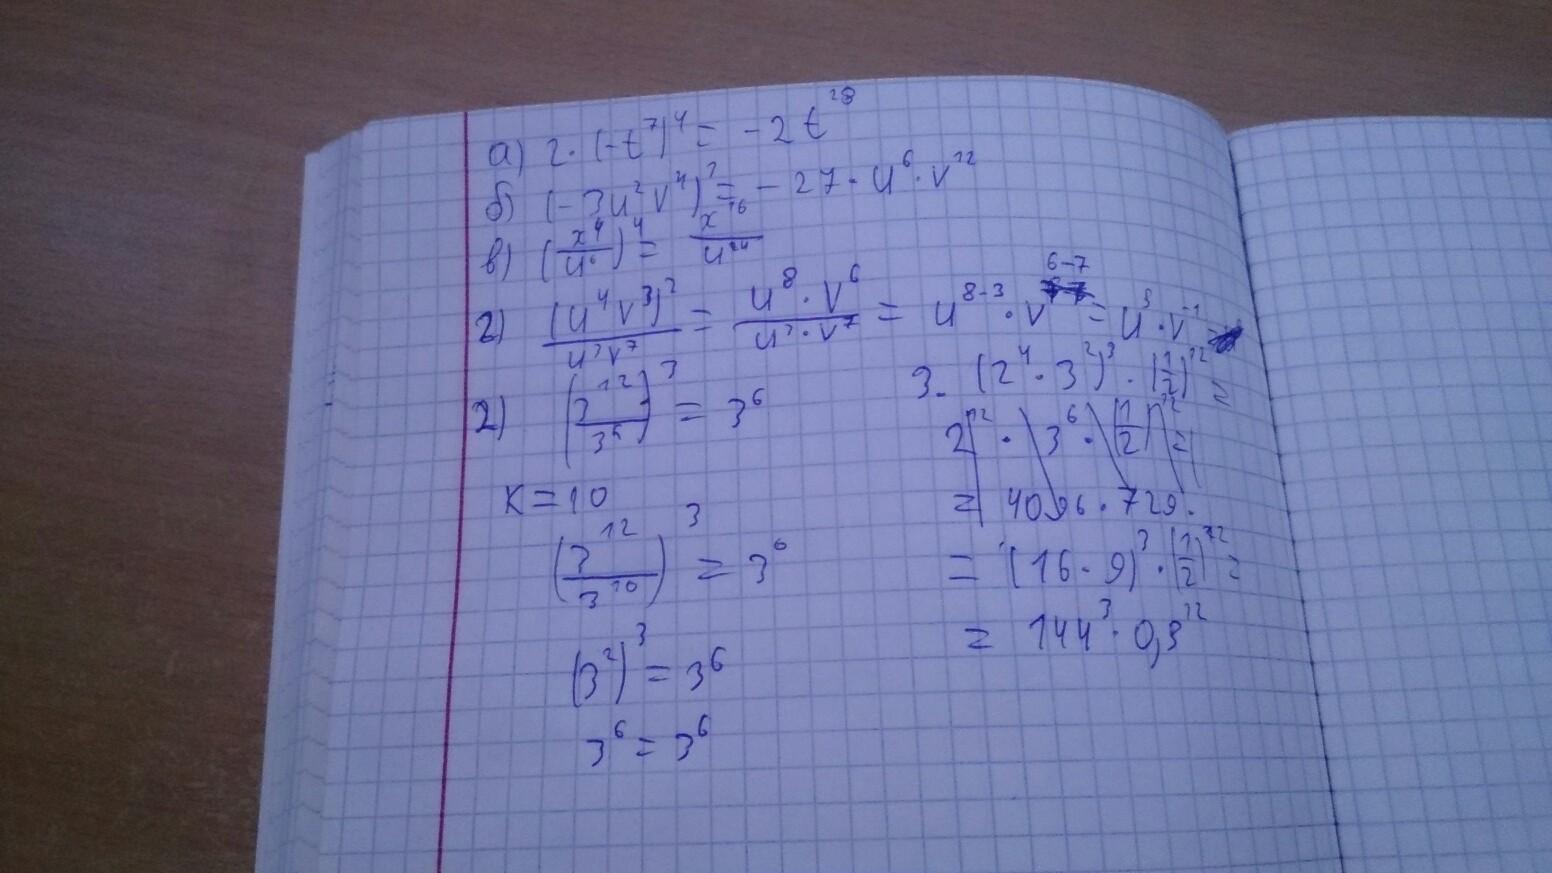 а) 2·(-t⁷)⁴ = -2t²⁸
б) (-3u²v⁴)³ = -27·u⁶·v¹²
в) (x⁴/u⁶)⁴ = x¹⁶/u²⁴
г) (u⁴v³)²/u³v⁷ = u⁸·v⁶/u³·v⁷ = u⁸⁻³·v⁶⁻⁷ = u⁵·v⁻¹
2) (3¹²/3ᵏ)³ = 3⁶
K = 10
(3¹²/3¹⁰)³ = 3⁶
(3²)³ = 3⁶
3⁶ = 3⁶
3. (2⁴·3²)³·(1/2)¹² =
2¹²·3⁶·(1/2)¹² =
= 4096·729·
= (16·9)³·(1/2)¹² =
= 144³·0,5¹²